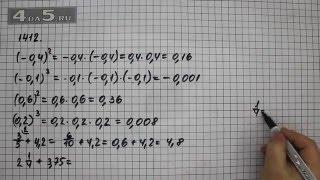 4DA5.RU
1412.
(-0,4)² = -0,4 · (-0,4) = 0,4 · 0,4 = 0,16
(-0,1)³ = -0,1 · (-0,1) · (-0,1) = -0,001
(0,6)² = 0,6 · 0,6 = 0,36
(0,2)³ = 0,2 · 0,2 · 0,2 = 0,008
3/5 + 4,2 = 6/10 + 4,2 = 0,6 + 4,2 = 4,8
2 1/ + 3,75 =